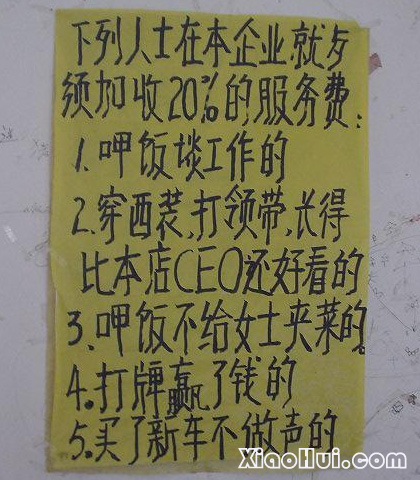 下列人士在本企业就歺
须加收20%的服务费:
1.呷饭埮工作的
2.穿西装,打领带,长得
比本店CEO还好看的
3.呷饭不给女士夹菜的。
4.打牌赢了钱的
5.买了新车不做声的
XiaoHui.com